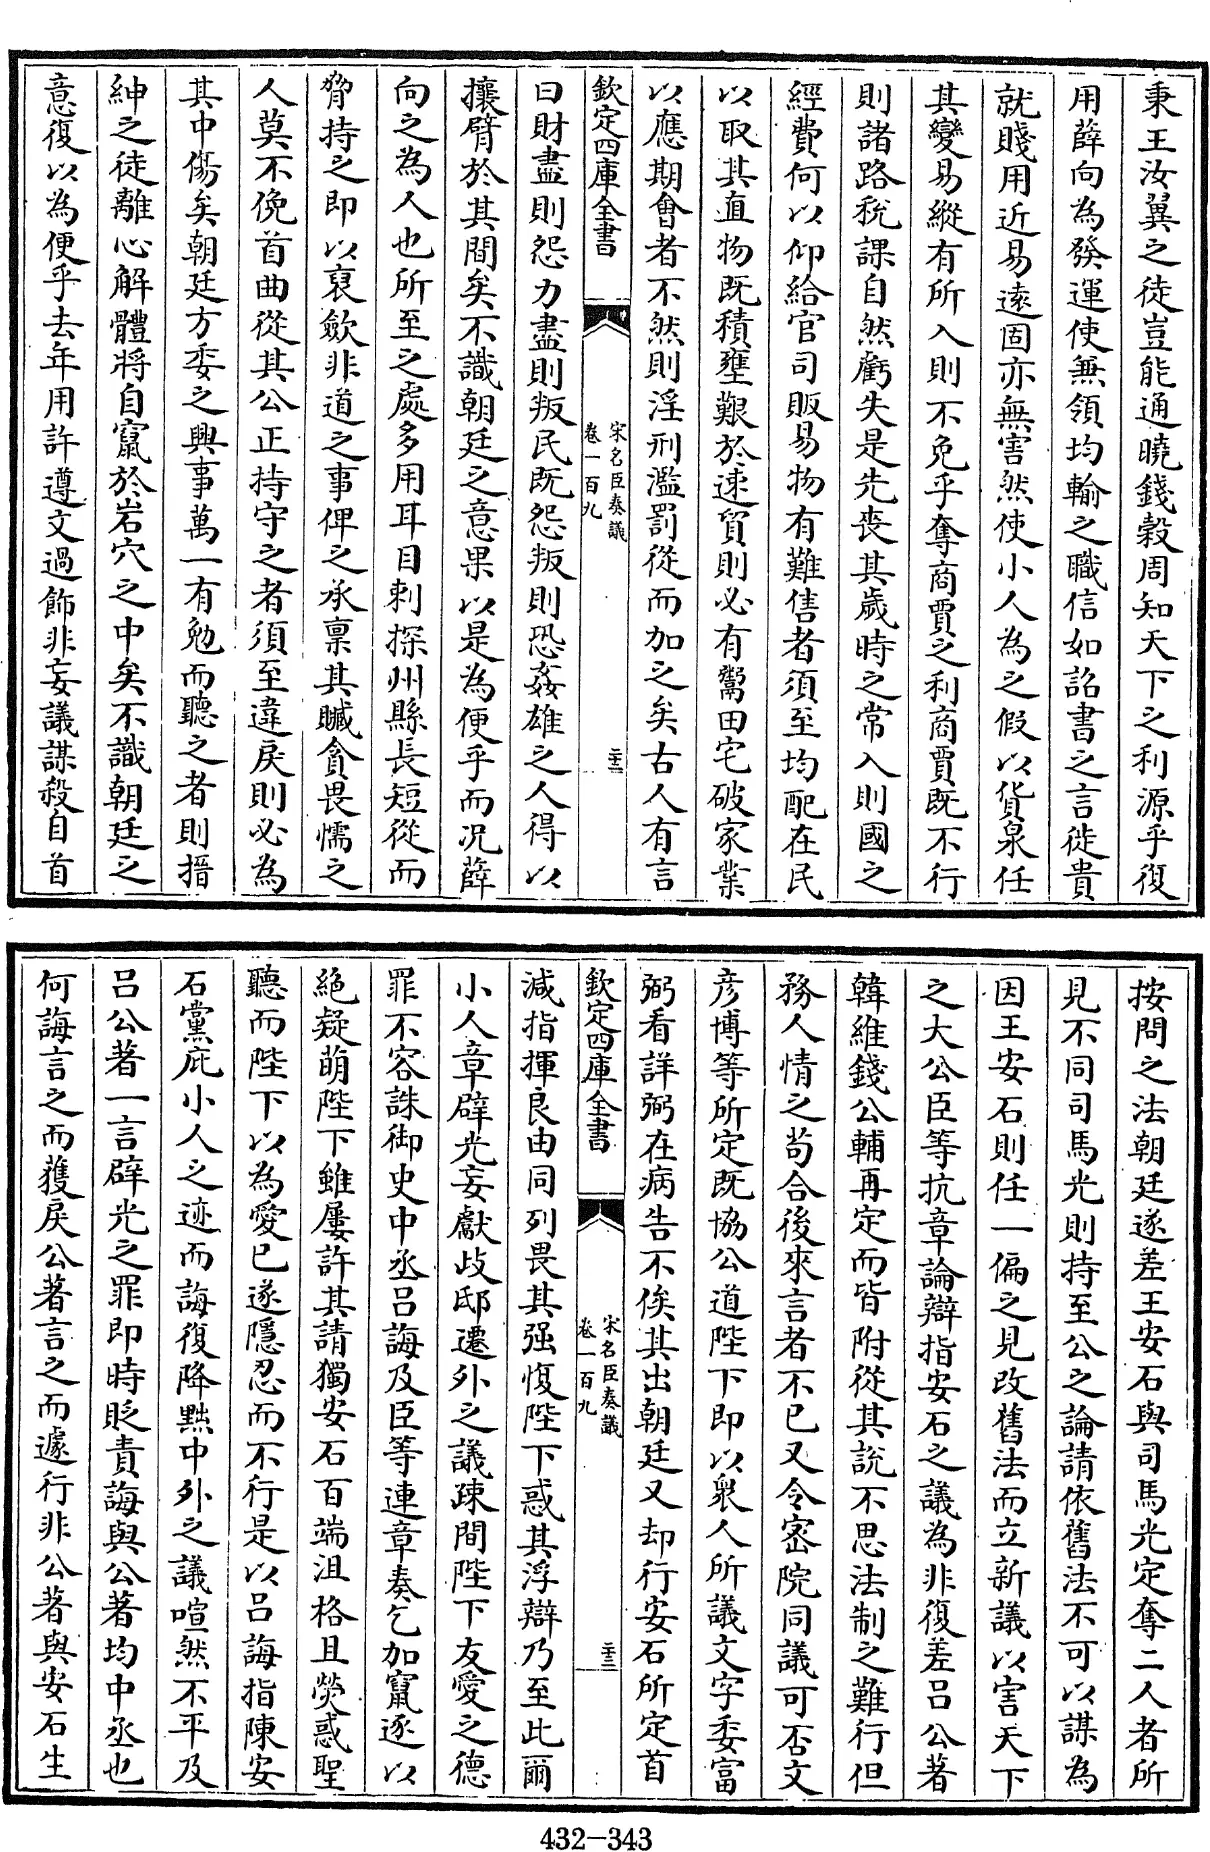 秉王汝翼之徒豈能通曉錢穀周知天下之利源乎復
用薛向為發運使無領均輸之職信如詔書之言徙貴
就賤用近易遠固亦無害然使小人為之假以貨泉任
其變易縱有所入則不免乎奪商賈之利商賈既不行
則諸路稅課自然虧失是先喪其歲時之常入則國之
經費何以仰給官司販易物有難售者須至均配在民
以取其直物既積壅艱於速貿則必有鬻田宅破家業
以應期會者不然則淫刑濫罰從而加之矣古人有言
欽定四庫全書
宋名臣奏議
卷一百九
二十二
曰財盡則怨力盡則叛民既怨叛則恐姦雄之人得以
攘臂於其間矣不識朝廷之意果以是為便乎而況薛
向之為人也所至之處多用耳目刺探州縣長短從而
脅持之即以裒斂非道之事俾之承稟其贓貪畏懦之
人莫不俛首曲從其公正持守之者須至違戾則必為
其中傷矣朝廷方委之興事萬一有勉而聽之者則搢
紳之徒離心解體將自竄於岩穴之中矣不識朝廷之
意復以為便乎去年用許遵文過飾非妄議謀殺自首
按問之法朝廷遂差王安石與司馬光定奪二人者所
見不同司馬光則持至公之論請依舊法不可以謀為
因王安石則任一偏之見改舊法而立新議以害天下
之大公臣等抗章論辯指安石之議為非復差呂公著
韓維錢公輔再定而皆附從其說不思法制之難行但
務人情之苟合後來言者不已又令密院同議可否文
彥博等所定既協公道陛下即以衆人所議文字委富
弼看詳弼在病告不俟其出朝廷又却行安石所定首
欽定四庫全書
宋名臣奏議
卷一百九
二十三
減指揮良由同列畏其强愎陛下惑其浮辯乃至此爾
小人章辟光妄獻歧邸遷外之議疎間陛下友愛之德
罪不容誅御史中丞呂誨及臣等連章奏乞加竄逐以
絶疑萌陛下雖屢許其請獨安石百端沮格且熒惑聖
聽而陛下以為愛已遂隱忍而不行是以呂誨指陳安
石黨庇小人之迹而誨復降黜中外之議喧然不平及
呂公著一言辟光之罪即時貶責誨與公著均中丞也
何誨言之而獲戾公著言之而遽行非公著與安石生
432-343